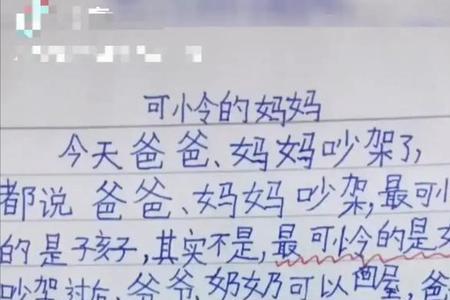 可怜的妈妈
今天爸爸、妈妈吵架了,
都说爸爸、妈妈吵架,最可
的是孩子,其实不是,最可怜的是
吵架过后,爷爷、奶奶可以回屋,爸